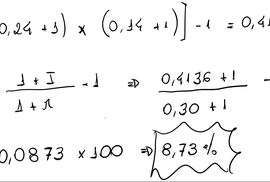 0,24 + 1) × (0,14 + 1)] - 1 = 0,41
1 + I / 1 + r - 1 ⇒ 0,4136 + 1 / 0,30 + 1 -
0,0873 × 100 ⇒ 8,73 %